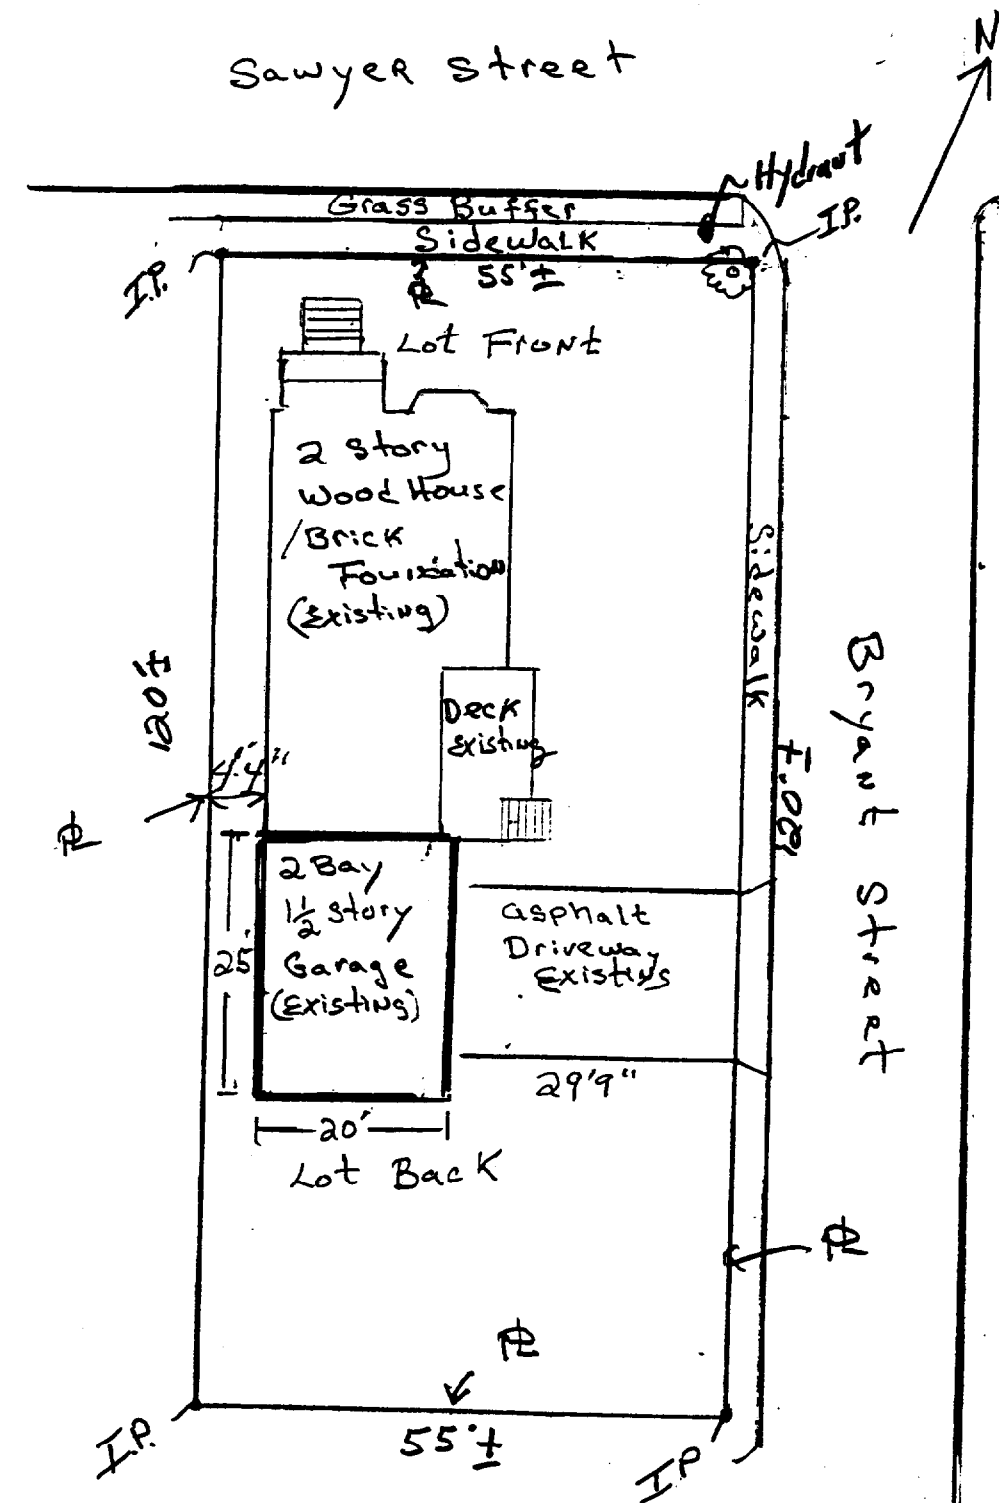 Sawyer Street
N
Hydrant
Grass Buffer
I.P.
Sidewalk
I.P.
55'±
PL
Lot Front
2 Story
Wood House
/Brick
Foundation
(Existing)
Sidewalk
120'±
Deck
Existing
4'-4"
PL
120'±
Bryant Street
2 Bay
1½ Story
Garage
(Existing)
25'
asphalt
Driveway
Existing
29'9"
20'
Lot Back
PL
PL
I.P.
55'±
I.P.